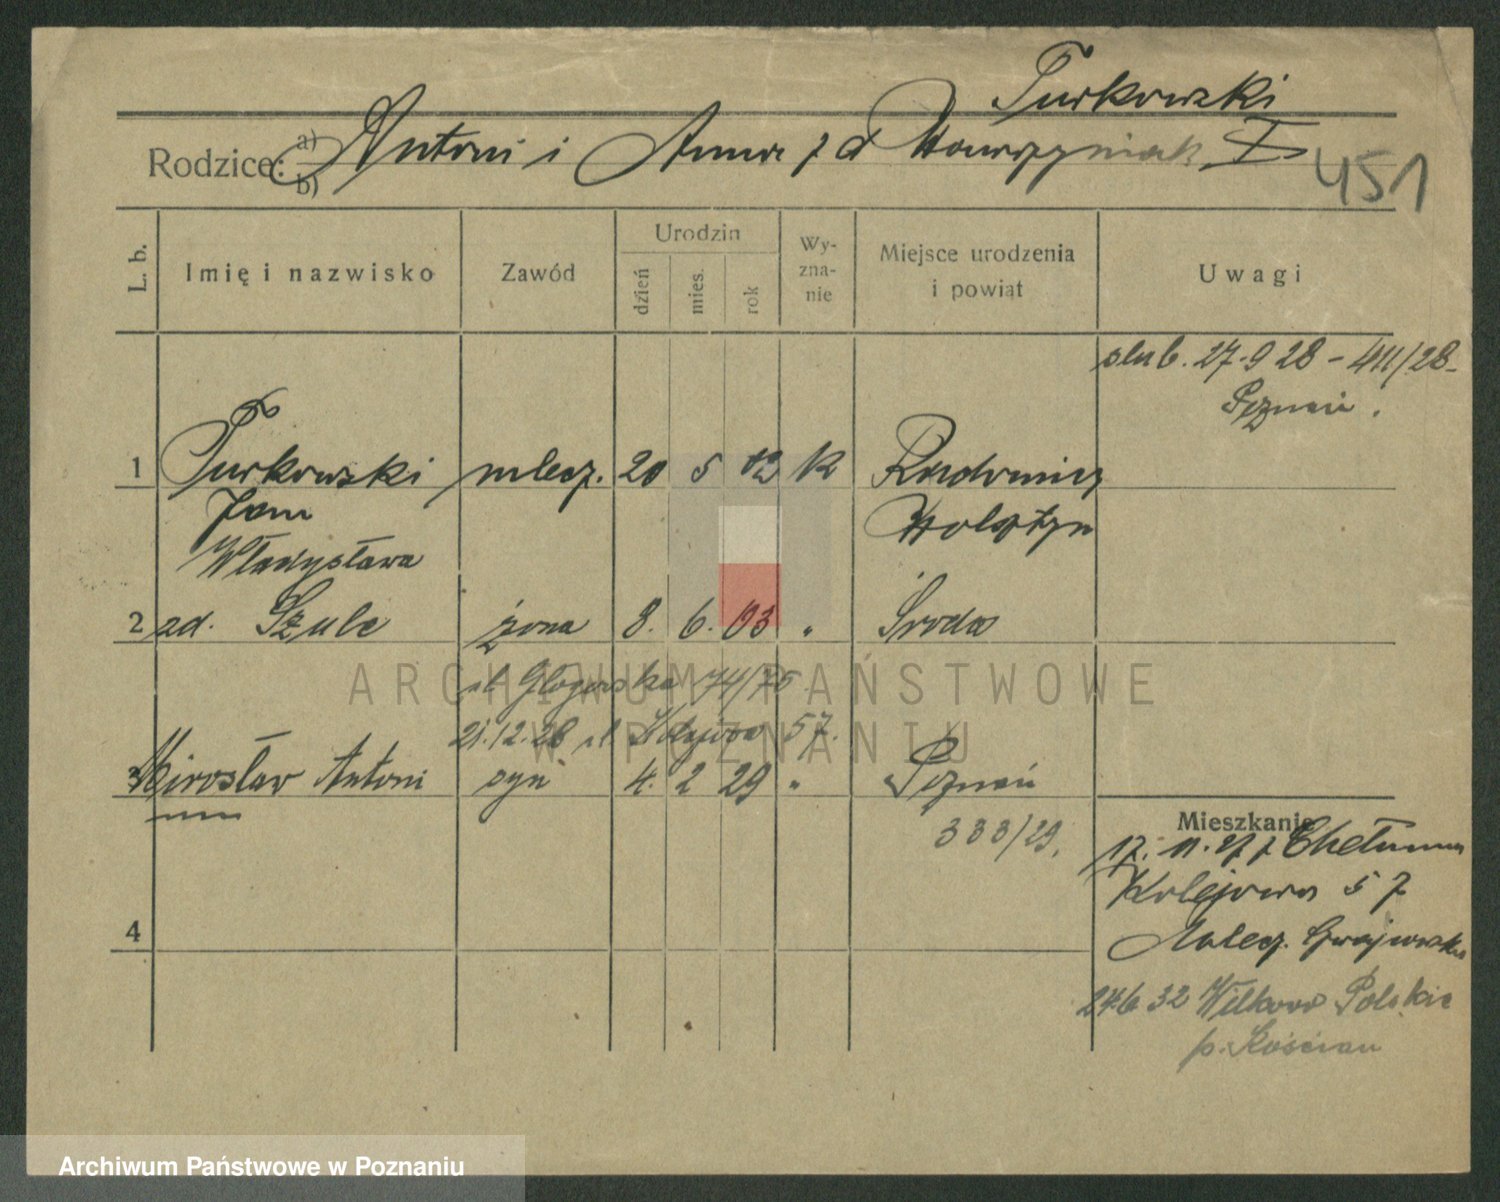 Turkowski
Rodzice: a) Antoni i Anna z d Wawrzyniak
b)
451
L. b.
Imię i nazwisko
Zawód
Urodzin
dzień
mies.
rok
Wy-
zna-
nie
Miejsce urodzenia
i powiąt
Uwagi
slub. 27.9 28 - 411/28
Poznań.
1 Turkowski mlecz. 20 5 02 k Radomierz
Jan Wolsztyn
Władysława
2 zd. Szulc żona 8. 6. 03 " Środa
ul Głogowska 74/75
21.12.28 ul Kolejowa 57.
3 Mirosław Antoni syn 4. 2 29 " Poznań
333/29.
Mieszkanie
17. 11. 27 z
Kolejowa 57
4
24.6 32 Wilkowo Polskie
p. Kościan
ARCHIWUM PAŃSTWOWE
W POZNANIU
Archiwum Państwowe w Poznaniu